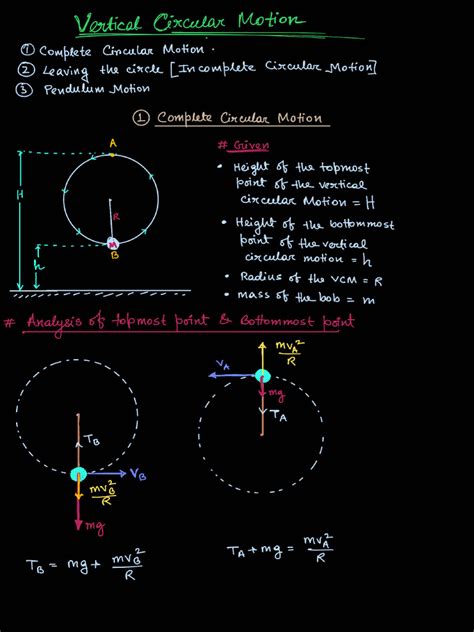 Vertical Circular Motion
① Complete Circular Motion.
② Leaving the circle [Incomplete Circular Motion]
③ Pendulum Motion
① Complete Circular Motion
# Given
• Height of the topmost
point of the vertical
circular Motion = H
• Height of the bottommost
point of the vertical
circular motion = h
• Radius of the VCM = R
• mass of the bob = m
A
H
R
M
B
h
# Analysis of topmost point & Bottommost point
T_B
V_B
mv_B²/R
mg
T_B = mg + mv_B²/R
mv_A²/R
V_A
mg
T_A
T_A + mg = mv_A²/R